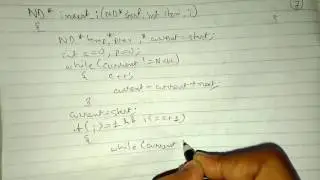 ND* insert_i(ND* start, int item, i)
{
ND* temp, * prev, * current=start;
int c=0, p=0;
while(current != NULL)
{
c++;
current = current→next;
}
current=start;
if(i>=1 && i<=c+1)
{
while(current